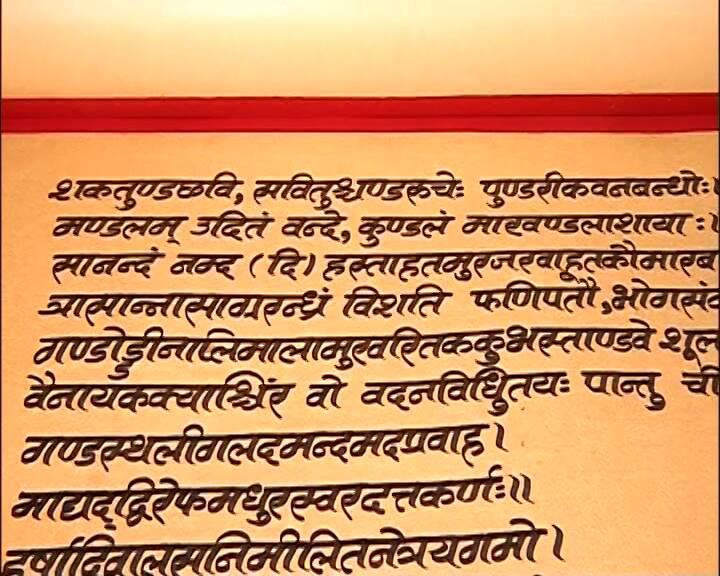 शकतुण्डछवि, सवितुश्चण्डरुचेः पुण्डरीकवनबन्धोः।
मण्डलम् उदितं वन्दे, कुण्डलं माखण्डलाशायाः।
सानन्दं नम्द (दि) हस्ताहतमुरजरवाहूतकौमारब
त्रासान्नासाग्ररन्ध्रं विशति फणिपतौ, भोगसं
गण्डोड्डीनालिमालामुखरितककुभस्ताण्डवे शूल
वैनायकक्याश्चिंर वो वदनविधुितयः पान्तु ची
गण्डस्थलीगलदमन्दमदप्रवाह।
माद्यद्द्विरेफमधुरस्वरदत्तकर्णः॥
हर्षादिवालसनिमीलितनेत्रयगमो।